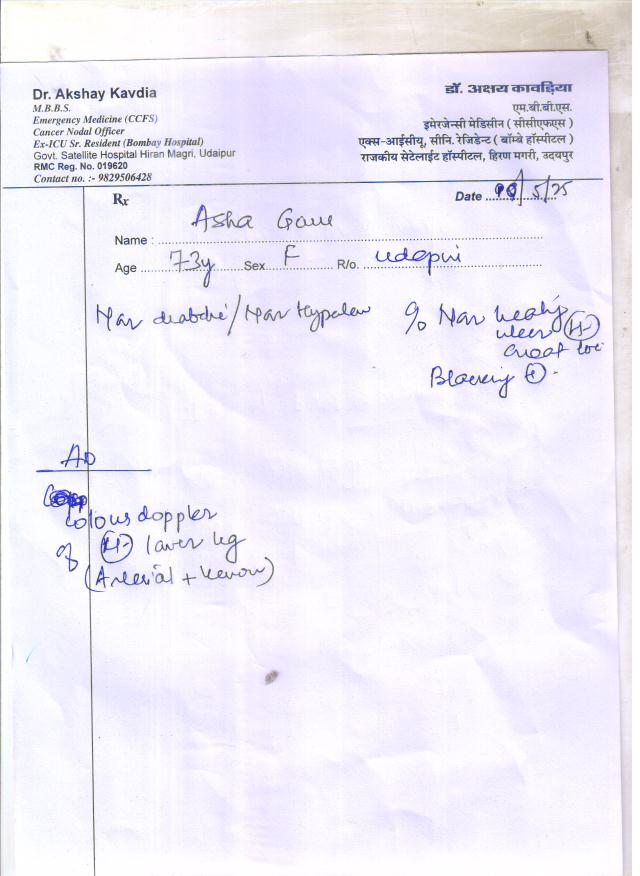 Dr. Akshay Kavdia
M.B.B.S.
Emergency Medicine (CCFS)
Cancer Nodal Officer
Ex-ICU Sr. Resident (Bombay Hospital)
Govt. Satellite Hospital Hiran Magri, Udaipur
RMC Reg. No. 019620
Contact no. :- 9829506428
डॉ. अक्षय कावड़िया
एम.बी.बी.एस.
इमेरजेन्सी मेडिसीन ( सीसीएफएस )
एक्स-आईसीयू, सीनि. रेजिडेन्ट ( बॉम्बे हॉस्पीटल )
राजकीय सेटेलाईट हॉस्पीटल, हिरण मगरी, उदयपुर
Rx
Date /5/25
Name : Asha
Age 73y Sex F R/o.
Non / Non
c/o Non
ulcer
Great toe
+
Colour doppler
of lower leg
(Arterial + Venous)